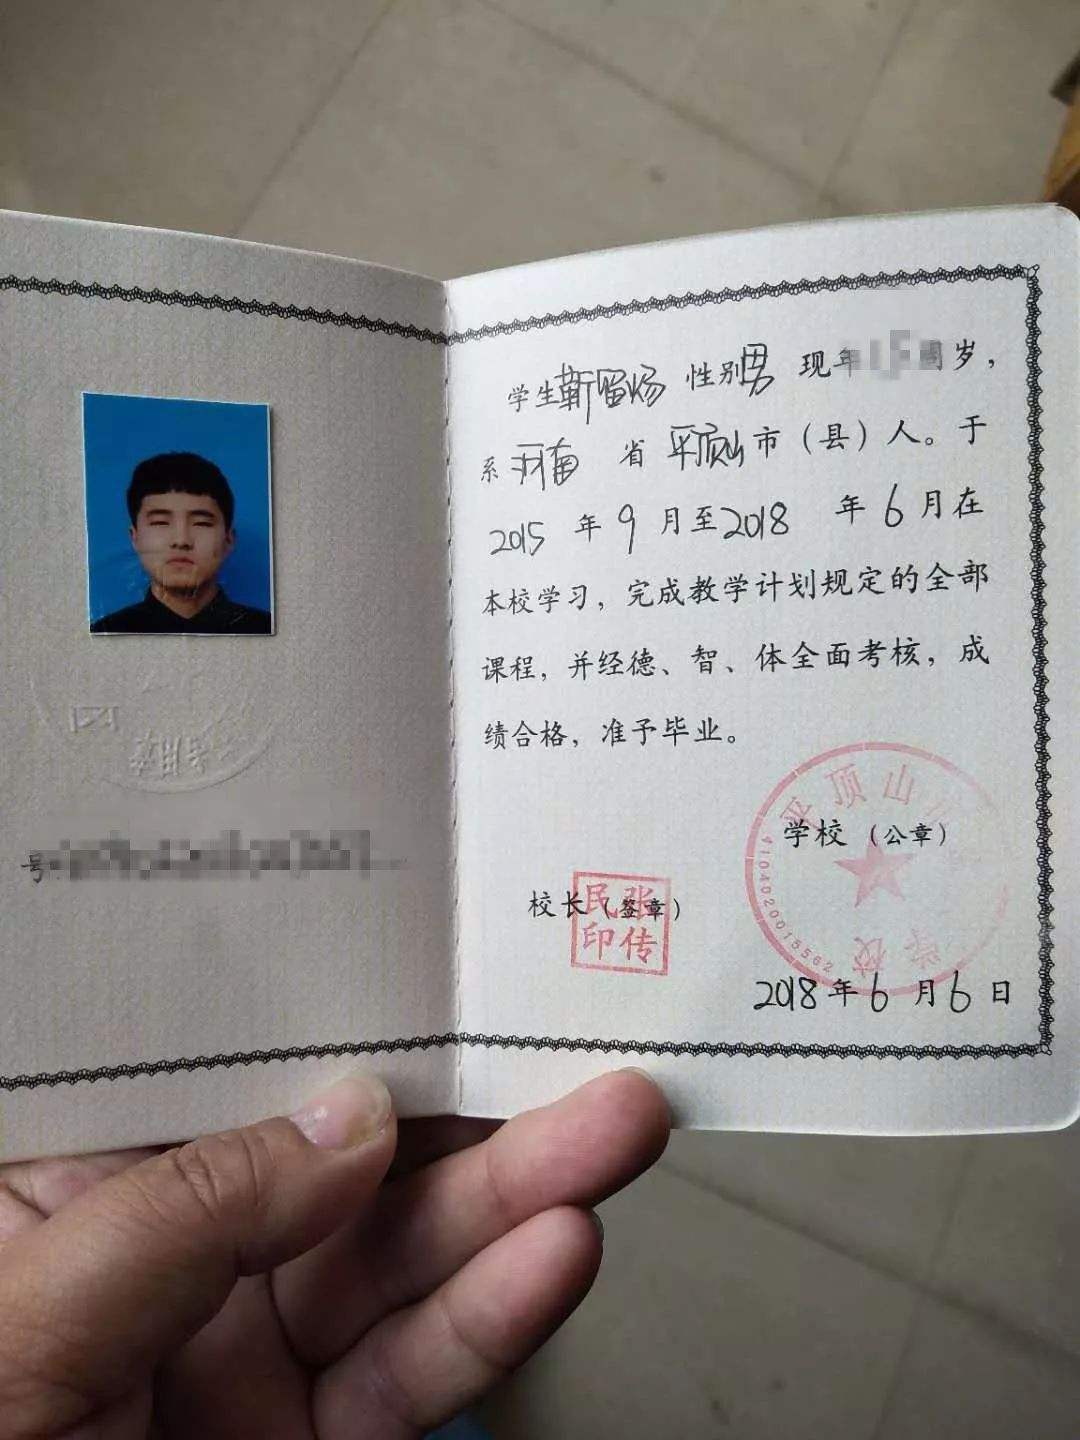 号
学生靳留炀 性别男 现年 周岁，
系河南 省 平顶山市（县）人。于
2015 年 9 月至2018 年 6 月在
本校学习，完成教学计划规定的全部
课程，并经德、智、体全面考核，成
绩合格，准予毕业。
平顶山
学校（公章）
校长（签章）
张传民印
学校
4104020015562
2018 年 6 月 6 日